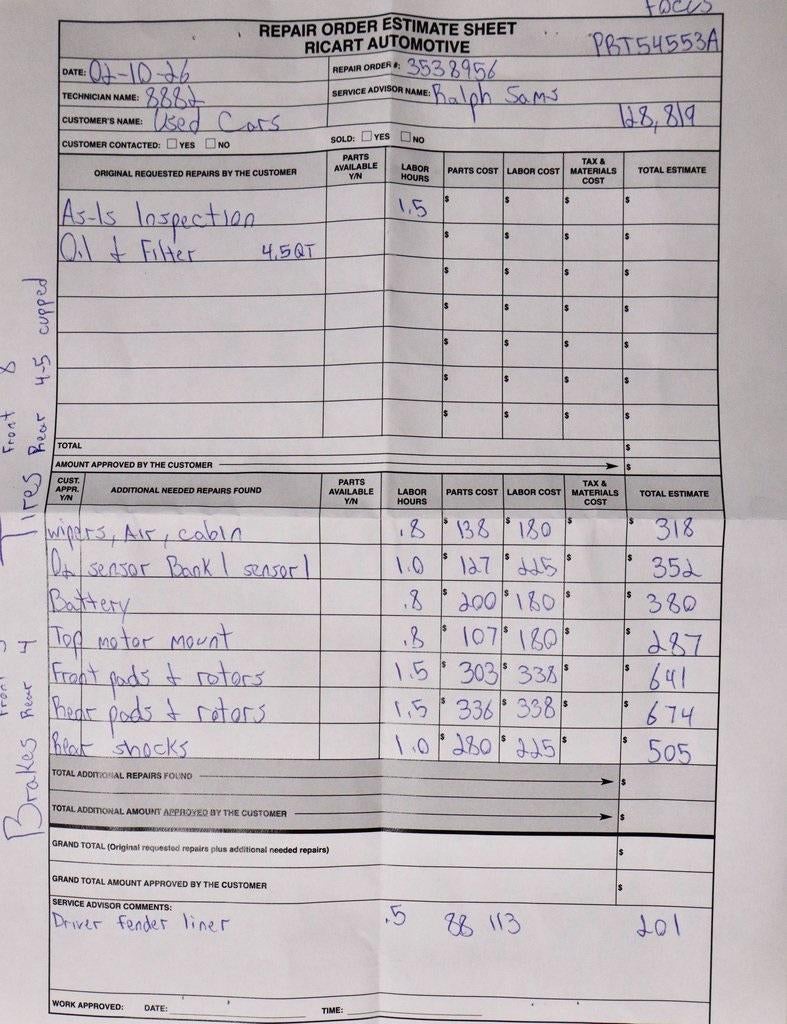 Focus
REPAIR ORDER ESTIMATE SHEET
RICART AUTOMOTIVE
PBT54553A
DATE: 02-10-26 REPAIR ORDER #: 3538956
TECHNICIAN NAME: 8882 SERVICE ADVISOR NAME: Ralph Sams
CUSTOMER'S NAME: Used Cars 128,819
CUSTOMER CONTACTED: ☐ YES ☐ NO SOLD: ☐ YES ☐ NO
ORIGINAL REQUESTED REPAIRS BY THE CUSTOMER PARTS AVAILABLE Y/N LABOR HOURS PARTS COST LABOR COST TAX & MATERIALS COST TOTAL ESTIMATE
As-Is Inspection 1.5 $ $ $ $
Oil & Filter 4.5QT $ $ $ $
$ $ $ $
$ $ $ $
$ $ $ $
$ $ $ $
$ $ $ $
TOTAL $
AMOUNT APPROVED BY THE CUSTOMER $
CUST. APPR. Y/N ADDITIONAL NEEDED REPAIRS FOUND PARTS AVAILABLE Y/N LABOR HOURS PARTS COST LABOR COST TAX & MATERIALS COST TOTAL ESTIMATE
wipers, Air, cabin .8 $ 138 $ 180 $ $ 318
O2 sensor Bank 1 sensor 1 1.0 $ 127 $ 225 $ $ 352
Battery .8 $ 200 $ 180 $ $ 380
Top motor mount .8 $ 107 $ 180 $ $ 287
Front pads & rotors 1.5 $ 303 $ 338 $ $ 641
Rear pads & rotors 1.5 $ 336 $ 338 $ $ 674
Rear shocks 1.0 $ 280 $ 225 $ $ 505
TOTAL ADDITIONAL REPAIRS FOUND $
TOTAL ADDITIONAL AMOUNT APPROVED BY THE CUSTOMER $
GRAND TOTAL (Original requested repairs plus additional needed repairs) $
GRAND TOTAL AMOUNT APPROVED BY THE CUSTOMER $
SERVICE ADVISOR COMMENTS:
Driver fender liner .5 88 113 201
WORK APPROVED: DATE: TIME:
Front 8
Tires Rear 4-5 cupped
Front
Brakes Rear 4